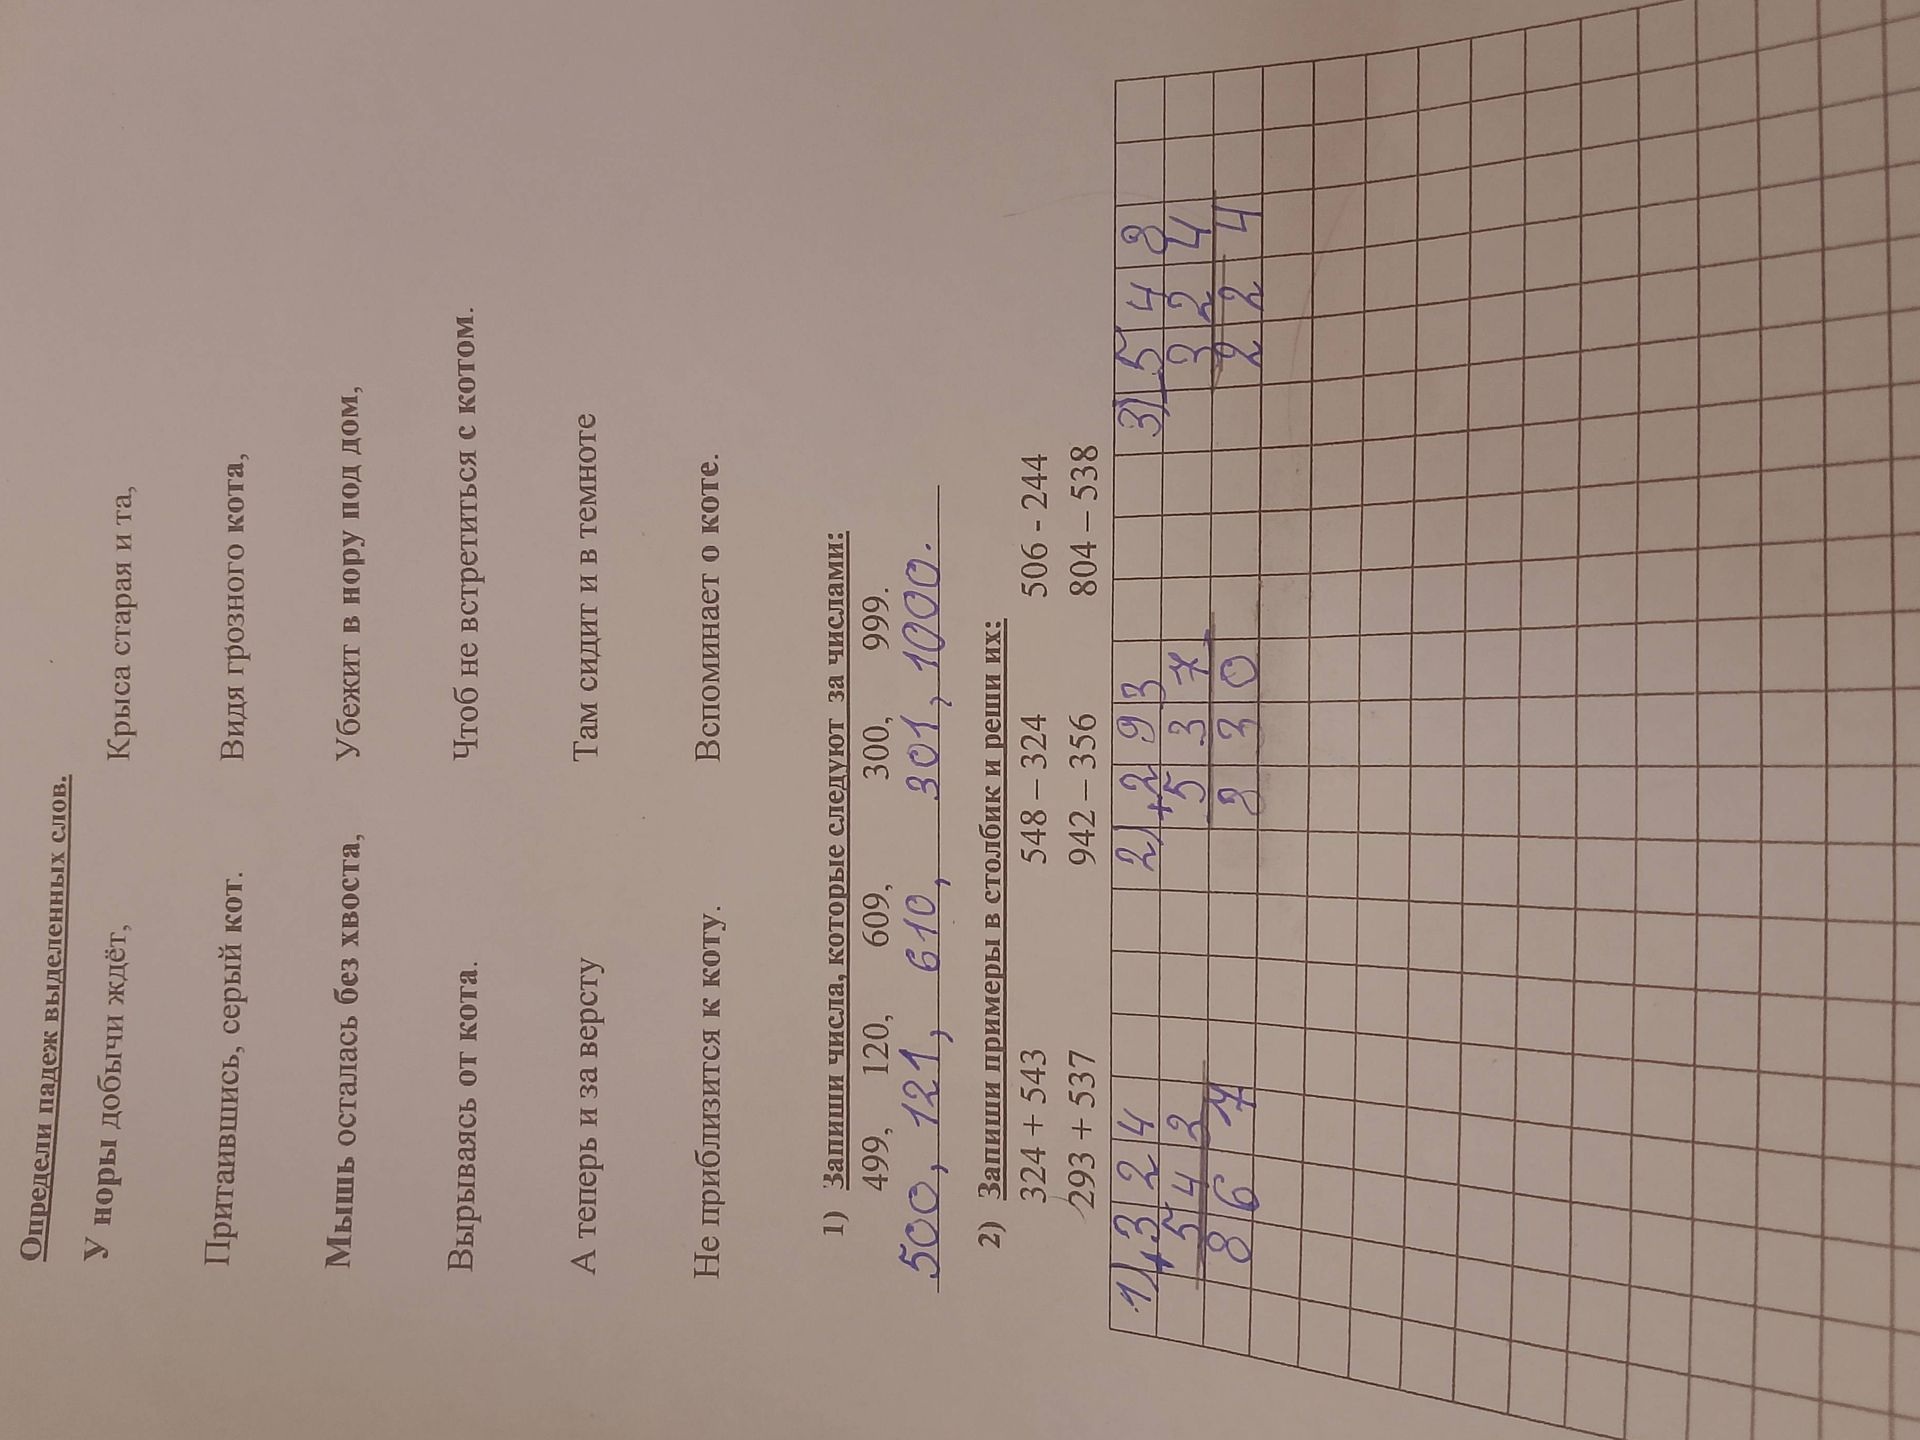 Определи падеж выделенных слов.
У норы добычи ждёт, Крыса старая и та,
Притаившись, серый кот. Видя грозного кота,
Мышь осталась без хвоста, Убежит в нору под дом,
Вырываясь от кота. Чтоб не встретиться с котом.
А теперь и за версту Там сидит и в темноте
Не приблизится к коту. Вспоминает о коте.
1) Запиши числа, которые следуют за числами:
499, 120, 609, 300, 999.
500, 121, 610, 301, 1000.
2) Запиши примеры в столбик и реши их:
324 + 543 548 – 324 506 - 244
293 + 537 942 – 356 804 – 538
1) + 3 2 4 2) + 2 9 3 3) - 5 4 8
5 4 3 5 3 7 3 2 4
8 6 7 8 3 0 2 2 4